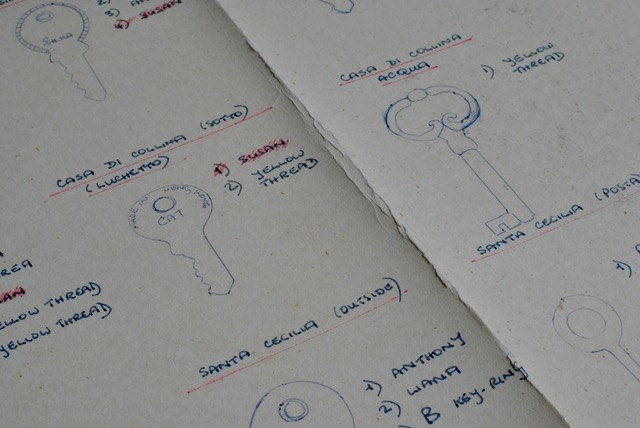 3)
4) SUSAN
Silca
CASA DI COLLINA (SOTTO)
(LUCHETTO)
1) SUSAN
2) YELLOW
THREAD
MADE IN HONG KONG
CAT
REA
AN
ELLOW THREAD
YELLOW THREAD
SANTA CECILIA (OUTSIDE)
1) ANTHONY
2) WANA
B KEY-RING
CASA DI COLLINA
ACQUA
1) YELLOW
THREAD
SANTA CECILIA (POSTA)
1)